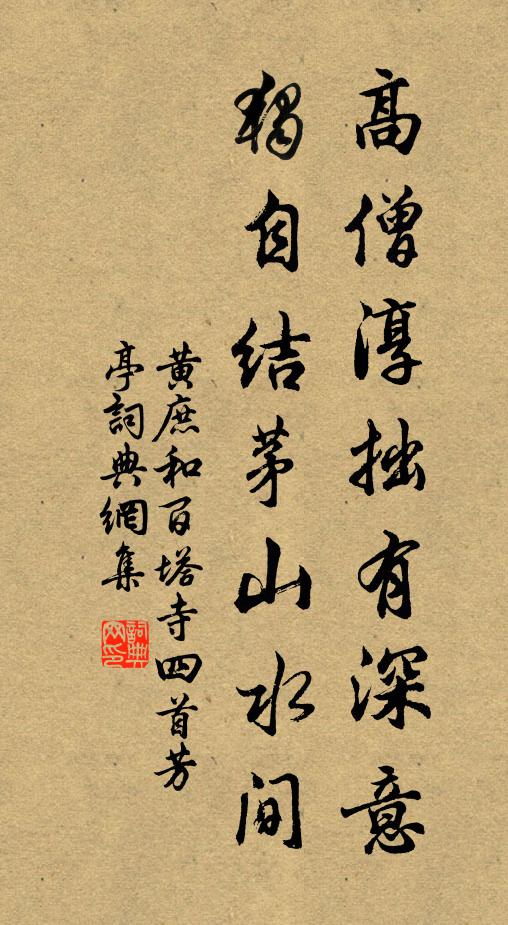 高僧淳拙有深意
獨自結茅山水間
黃庶和百塔寺四首芳
亭詞典網集
詞典網印